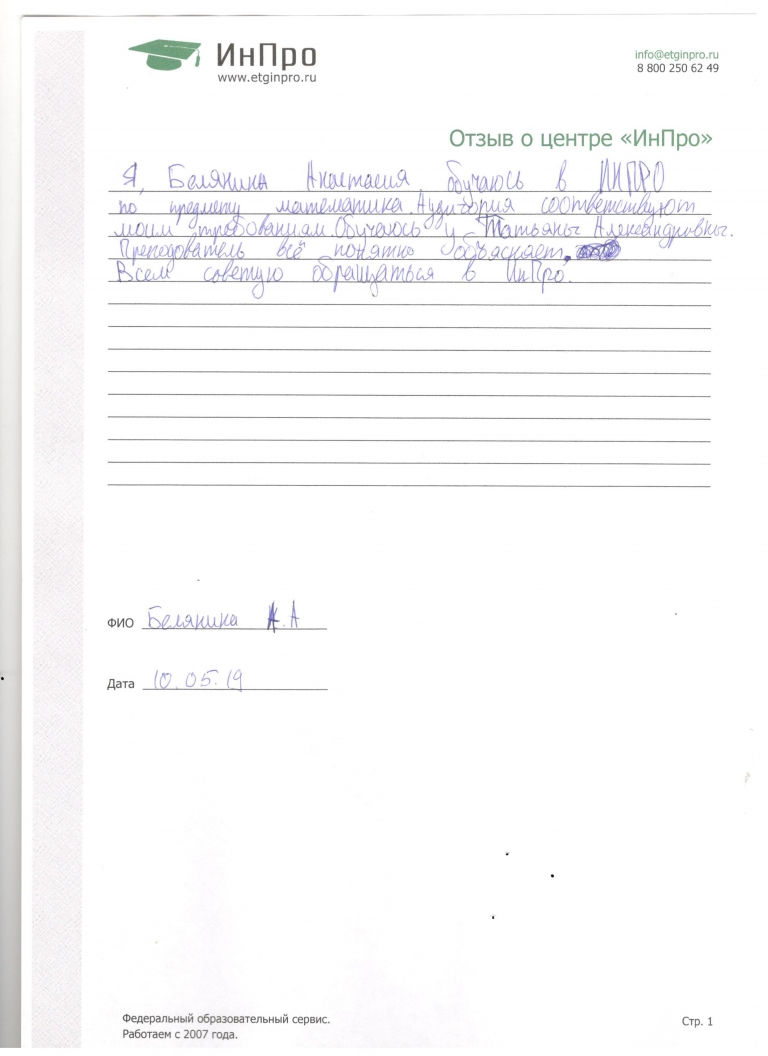 ИнПро
www.etginpro.ru
info@etginpro.ru
8 800 250 62 49
Отзыв о центре «ИнПро»
Я, Белянина Анастасия обучаюсь в ИНПРО
по предмету математика. Аудитория соответствуют
моим требованиям. Обучаюсь у Татьяны Александровны.
Преподователь всё понятно объясняет,
Всем советую обращаться в ИнПро.
ФИО Белянина А.А
Дата 10.05.19
Федеральный образовательный сервис.
Работаем с 2007 года.
Стр. 1